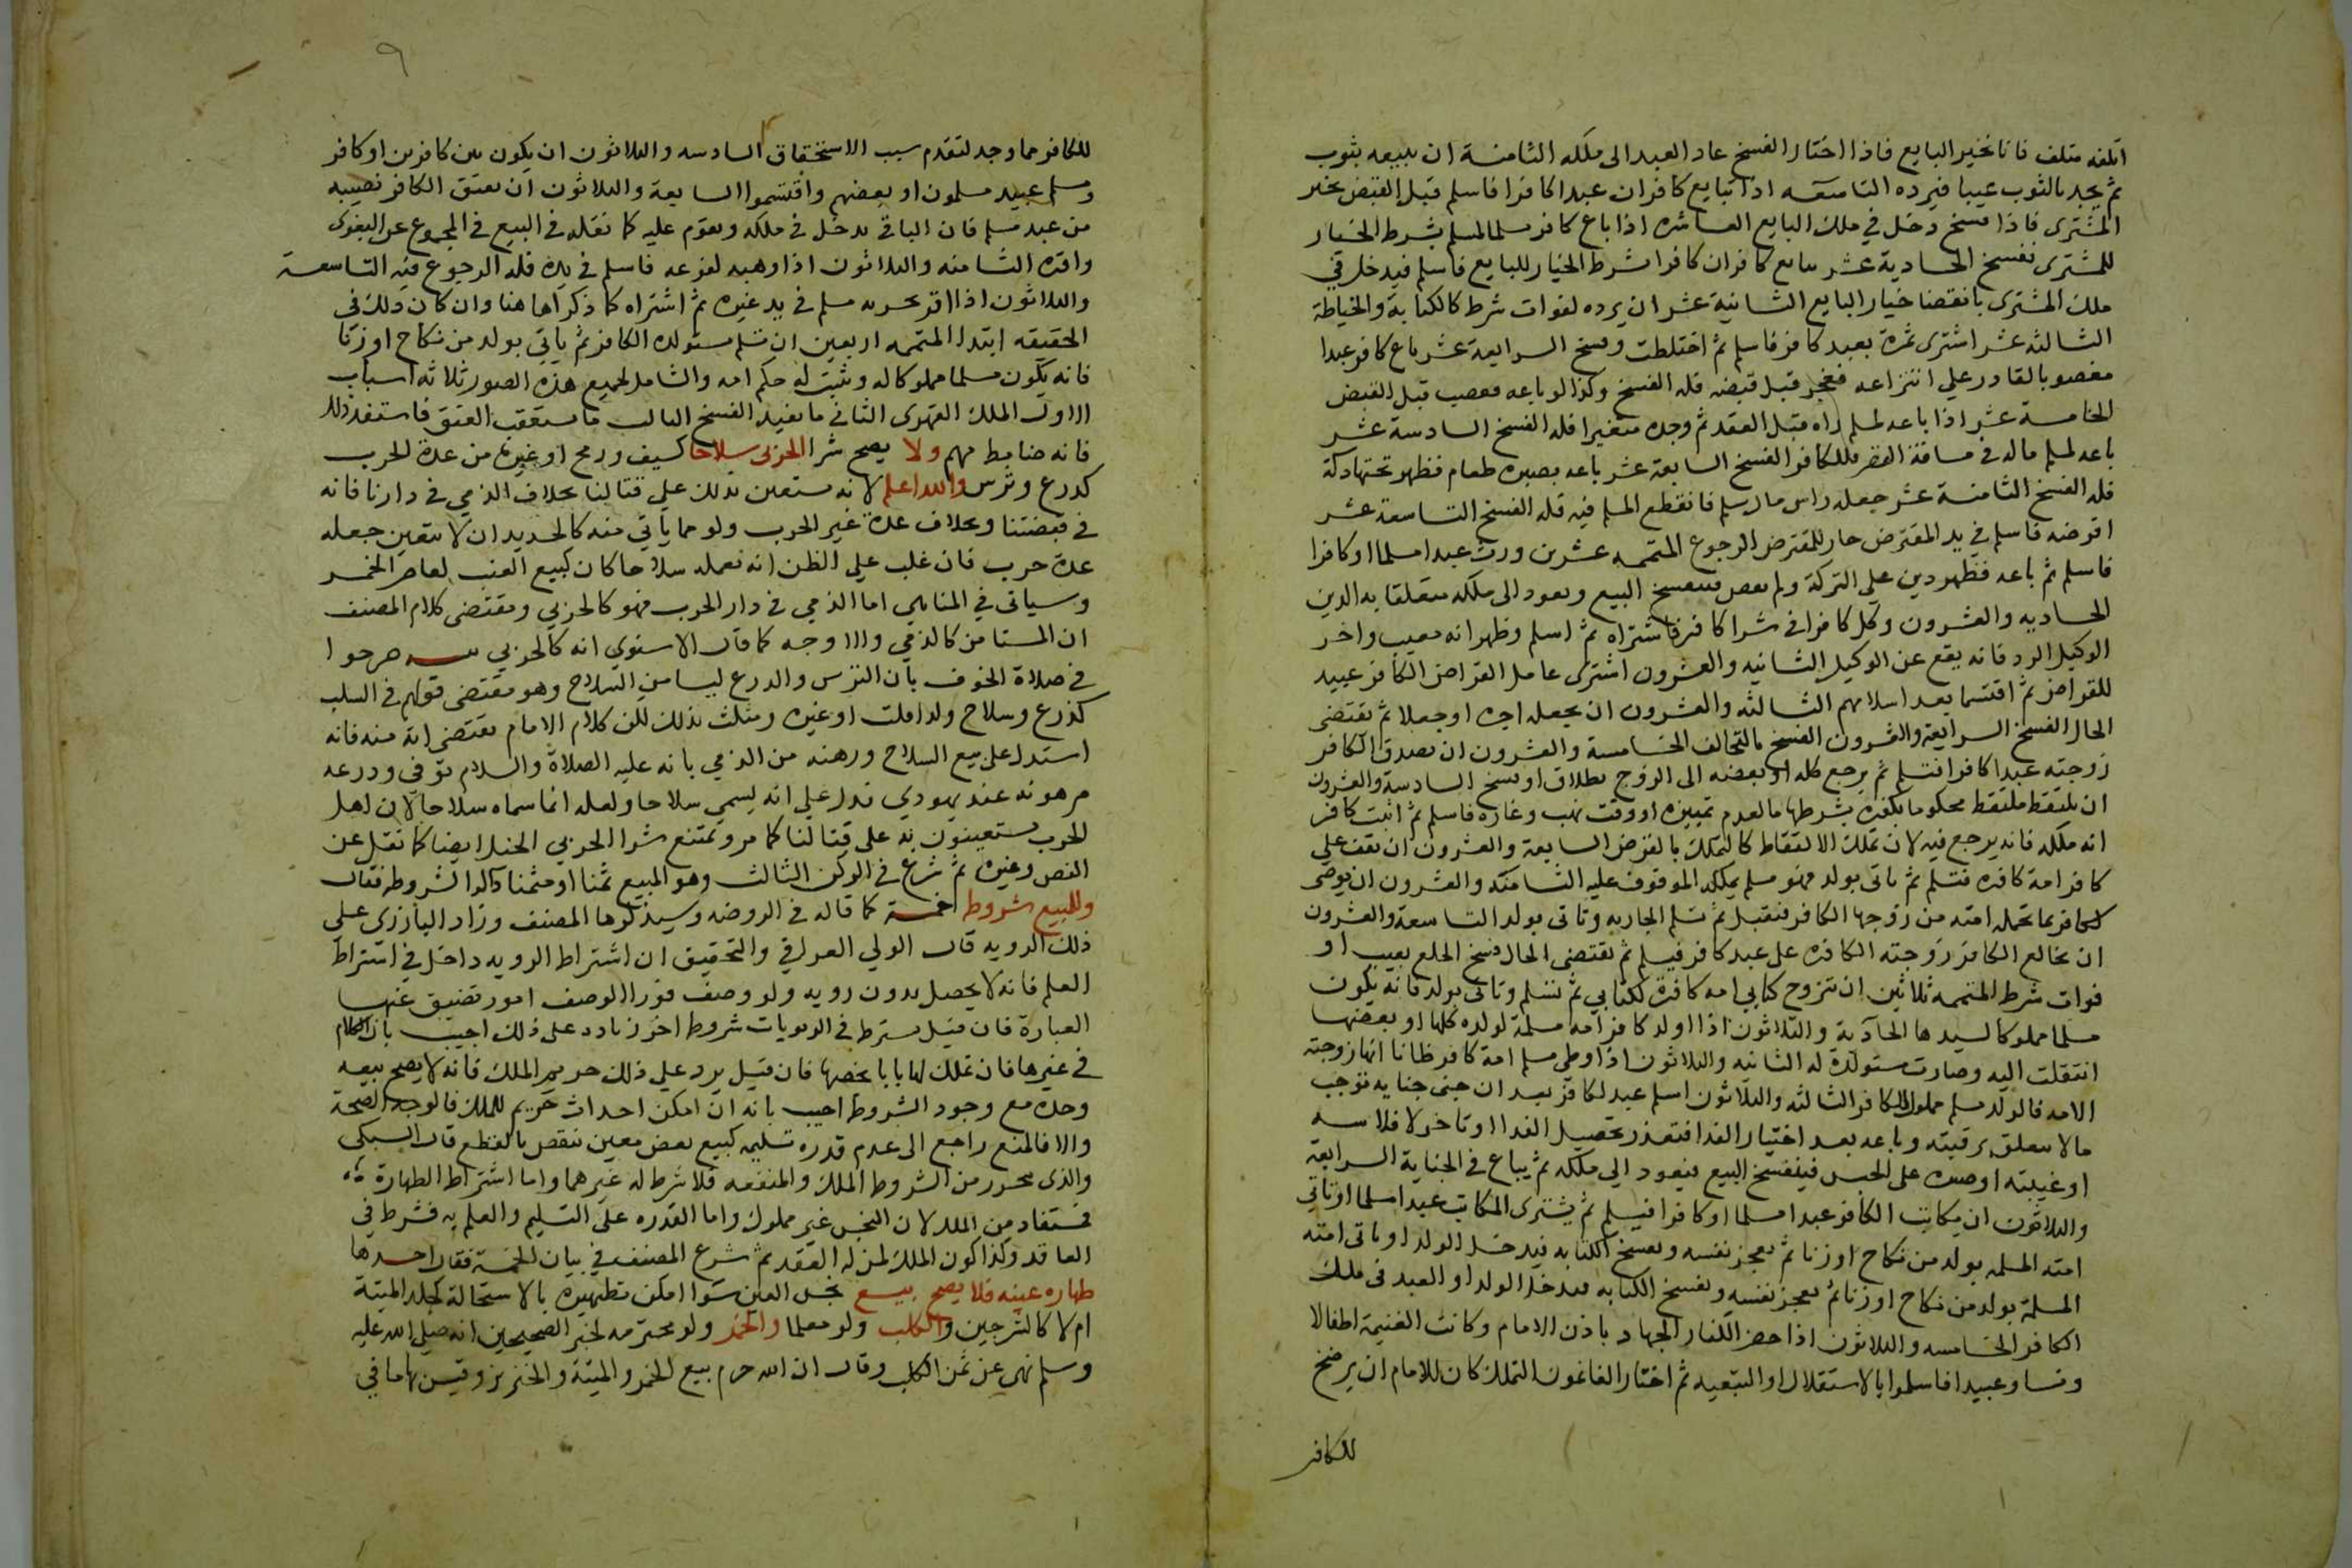 اتلفه متلف فانا نخير البايع فاذا اختار الفسخ عاد العبد الى ملكه الثامنة ان يبيعه بثوب
ثم يجد بالثوب عيبا فيرده التاسعه اذا تبايع كافران عبدا كافرا فاسلم قبل القبض يخير
المشترى فاذا فسخ دخل في ملك البايع العاشره اذا باع كافر مسلما لمسلم بشرط الخيار
للمشترى ففسخ الحادية عشر تبايع كافران كافرا بشرط الخيار للبايع فاسلم فيدخل في
ملك المشترى بانقضا خيار البايع الثانية عشر ان يرده لفوات شرط كالكتابة والخياطة
الثالثه عشر اشترى ثمرة بعبد كافر فاسلم ثم اختلطت وفسخ الرابعة عشر باع كافر عبدا
مغصوبا لقادر علي انتزاعه فعجز قبل قبضه فله الفسخ وكذا لو باعه فغصب قبل القبض
الخامسة عشر اذا باعه لمسلم راه قبل العقد ثم وجده متغيرا فله الفسخ السادسة عشر
باعه لمسلم ماله في مسافة القصر فللكافر الفسخ السابعة عشر باعه بصبره طعام فظهر تحتها دكة
فله الفسخ الثامنة عشر جعله راس مال سلم فانقطع المسلم فيه فله الفسخ التاسعة عشر
اقرضه فاسلم في يد المقترض جاز للمقرض الرجوع المتممه عشرين ورث عبدا مسلما او كافرا
فاسلم ثم باعه فظهر دين علي التركة ولم يقض فيفسخ البيع ويعود الى ملكه متعلقا به الدين
الحاديه والعشرون وكل كافرا في شرا كافر فاشتراه ثم اسلم وظهر انه معيب واخر
الوكيل الرد فانه يقع عن الوكيل الثانيه والعشرون اشترى عامل القراض الكافر عبيد
للقراض ثم اقتسما بعد اسلامهم الثالثه والعشرون ان يجعله اجره او جعلا ثم يقتضى
الحال الفسخ الرابعة والعشرون الفسخ بالتحالف الخامسة والعشرون ان يصدق الكافر
زوجته عبدا كافرا فتسلم ثم يرجع كله او بعضه الى الزوج بطلاق او فسخ السادسة والعشرون
ان يلتقط ملتقط محكوما بكفره بشرطها بالعدم تمييزه او وقت نهب وغاره فاسلم ثم اثبت كافر
انه ملكه فانه يرجع فيه لان تملك الالتقاط كالتملك بالقرض السابعة والعشرون ان يقف علي
كافر امة كافره فتسلم ثم ياتى بولد فهو مسلم يملكه الموقوف عليه الثامنة والعشرون ان يوصى
لكافر بما تحمله امته من زوجها الكافر فيقبل ثم تسلم الجاريه وتاتى بولد التاسعة والعشرون
ان يخالع الكافر زوجته الكافره على عبد كافر فيسلم ثم يقتضى الحال فسخ الخلع بعيب او
فوات شرط المتممه ثلاثين ان يتزوج كتابي امه كافرة لكتابي ثم تسلم وتاتى بولد فانه يكون
مسلما مملوكا لسيدها الحادية والثلاثون اذا اولد كافر امه مسلمة لولده كلها او بعضها
انتقلت اليه وصارت مستولدة له الثانيه والثلاثون اذا وطى مسلم امة كافر ظانا انها زوجته
الامه فالولد مسلم مملوك للكافر الثالثه والثلاثون اسلم عبد لكافر بعد ان جنى جنايه توجب
مالا يتعلق برقبته وباعه بعد اختيار الفدا فتعذر تحصيل الفدا او تاخر لافلاسه
او غيبته او صبره على الحبس فيفسخ البيع فيعود الى ملكه ثم يباع في الجناية الرابعة
والثلاثون ان يكاتب الكافر عبدا مسلما او كافرا فيسلم ثم يشترى المكاتب عبدا مسلما او تاتي
امته المسلمه بولد من نكاح او زنا ثم يعجز نفسه ويفسخ الكتابه فيدخل الولد او تاتى امته
المسلمة بولد من نكاح او زنا ثم يعجز نفسه ويفسخ الكتابه فيدخل الولد او العبد فى ملك
الكافر الخامسه والثلاثون اذا حضر الكفار الجهاد باذن الامام وكانت الغنيمة اطفالا
ونسا وعبيدا فاسلموا بالاستقلال او التبعيه ثم اختار الغانمون التملك كان للامام ان يرضخ
للكافر
٩
للكافر مما وجد لتقدم سبب الاستحقاق السادسه والثلاثون ان يكون بين كافرين او كافر
ومسلم عبيد مسلمون او بعضهم واقتسموا السابعة والثلاثون ان يعتق الكافر نصيبه
من عبد مسلم فان الباقي يدخل في ملكه ويقوم عليه كما نقله في البيع في المجموع عن البغوى
واقره الثامنه والثلاثون اذا وهبه لفرعه فاسلم في يده فله الرجوع فيه التاسعة
والثلاثون اذا اقر بحريه مسلم في يد غيره ثم اشتراه كما ذكراها هنا وان كان ذلك فى
الحقيقه ابتدا المتممه اربعين ان تسلم مستولده الكافر ثم ياتي بولد من نكاح او زنا
فانه يكون مسلما مملوكا له ويثبت له حكم امه والشامل لجميع هذه الصور ثلاثه اسباب
الاول الملك القهرى الثاني ما يفيد الفسخ الثالث ما يستعقب العتق فاستفد ذلك
فانه ضابط مهم ولا يصح شرا الحربى سلاحا كسيف ورمح او غيرها من عدة الحرب
كدرع وترس والله اعلم لانه يستعين بذلك علي قتالنا بخلاف الذمي في دارنا فانه
في قبضتنا وبخلاف عدة غير الحرب ولو مما ياتي منه كالحديد ان لا يتعين جعله
عدة حرب فان غلب علي الظن انه يعمله سلاحا كان كبيع العنب لعاصر الخمر
وسياتى في المناهي اما الذمي في دار الحرب فهو كالحربي ومقتضى كلام المصنف
ان المستامن كالذمي والاوجه كما قال الاسنوي انه كالحربي صرحوا
في صلاة الخوف بان الترس والدرع ليسا من السلاح وهو مقتضى قولهم في السلب
كدرع وسلاح ولذا قلت او غيره ومثلت بذلك لكن كلام الامام يقتضى انه منه فانه
استدل على بيع السلاح ورهنه من الذمي بانه عليه الصلاة والسلام توفي ودرعه
مرهونه عند يهودي فدل علي انه يسمي سلاحا ولعله انما سماه سلاحا لان اهل
الحرب يستعينون به على قتالنا كما مر ويمتنع شرا الحربي الخيل ايضا كما نقل عن
النص وغيره ثم شرع في الركن الثالث وهو المبيع ثمنا او مثمنا ذاكرا لشروطه فقال
وللبيع شروط خمسة كما قاله في الروضه وسيذكرها المصنف وزاد البارزى علي
ذلك الرويه قال الولي العراقي والتحقيق ان اشتراط الرويه داخل في اشتراط
العلم فانه لا يحصل بدون رويه ولو وصف فورا الوصف امور تضيق عنها
العبارة فان قيل يشترط في الربويات شروط اخر زيادة على ذلك اجيب بان الكلام
في غيرها فان تلك لها بابا يخصها فان قيل يرد علي ذلك حريم الملك فانه لا يصح بيعه
وحده مع وجود الشروط اجيب بانه ان امكن احداث حريم للملك فالوجه الصحة
والا فالمنع راجع الى عدم قدرة تسليمه كبيع بعض معين ينقص بالقطع قال السبكى
والذى يتحرر من الشروط الملك والمنفعه فلا شرط له غيرهما واما اشتراط الطهارة
فمستفاد من الملك لان النجس غير مملوك واما القدره على التسليم والعلم به فشرط في
العاقد وكذا كون الملك لمن له العقد ثم شرع المصنف في بيان الخمسة فقال احدها
طهاره عينه فلا يصح بيع نجس العين سوا امكن تطهيره بالاستحالة كجلد الميتة
ام لا كالسرجين والكلب ولو معلما والخمر ولو محترمه لخبر الصحيحين انه صلي الله عليه
وسلم نهي عن ثمن الكلب وقال ان الله حرم بيع الخمر والميتة والخنزير وقيس بها ما في